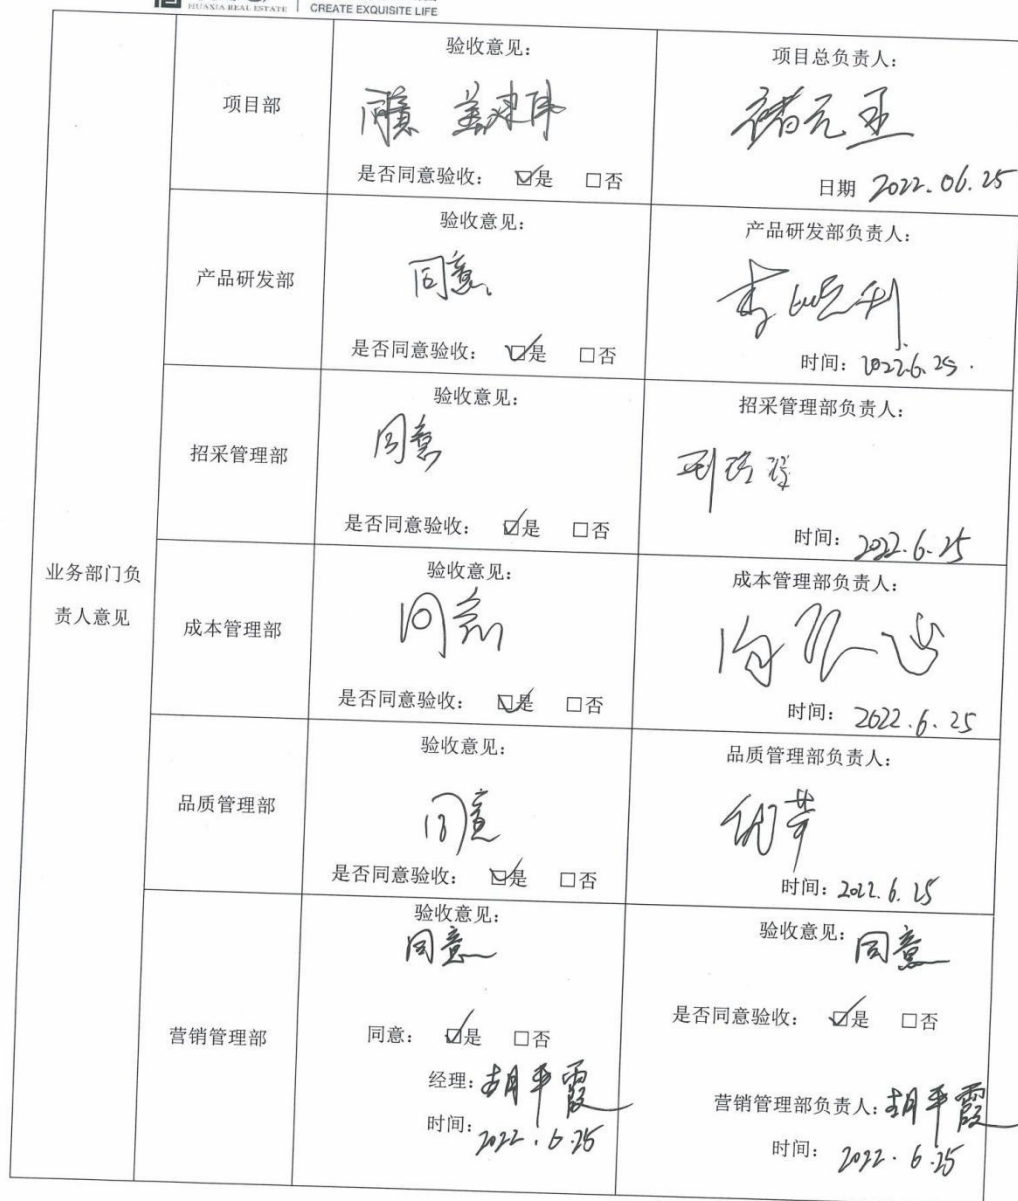 HUAXIA REAL ESTATE
CREATE EXQUISITE LIFE
业务部门负
责人意见
项目部
验收意见:
同意
是否同意验收: ☑是 □否
项目总负责人:
褚元玉
日期 2022.06.25
产品研发部
验收意见:
同意
是否同意验收: ☑是 □否
产品研发部负责人:
时间: 2022.6.25.
招采管理部
验收意见:
同意
是否同意验收: ☑是 □否
招采管理部负责人:
时间: 2022.6.25
成本管理部
验收意见:
同意
是否同意验收: ☑是 □否
成本管理部负责人:
时间: 2022.6.25
品质管理部
验收意见:
同意
是否同意验收: ☑是 □否
品质管理部负责人:
时间: 2022.6.25
营销管理部
验收意见:
同意
同意: ☑是 □否
经理: 胡平霞
时间: 2022.6.25
验收意见: 同意
是否同意验收: ☑是 □否
营销管理部负责人: 胡平霞
时间: 2022.6.25